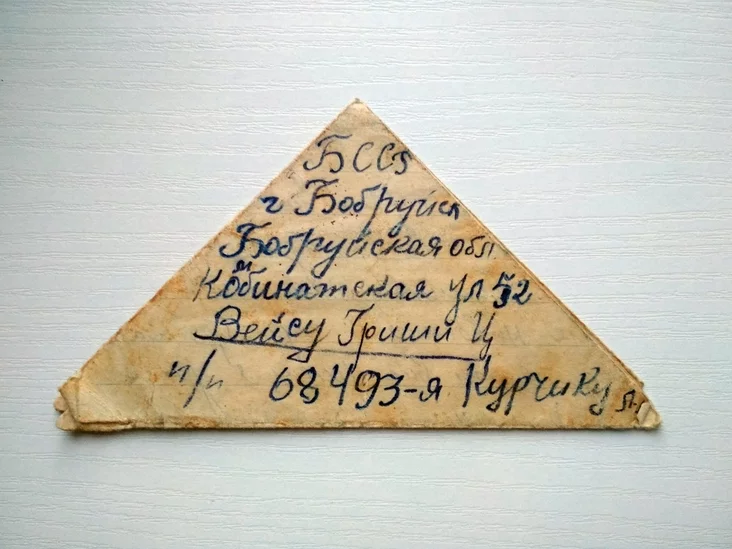 БССР
г Бобруйск
Бобруйская обл
Комбинатская ул 52
Вейсу Гриши Ц
п/п 68493-я Курчику